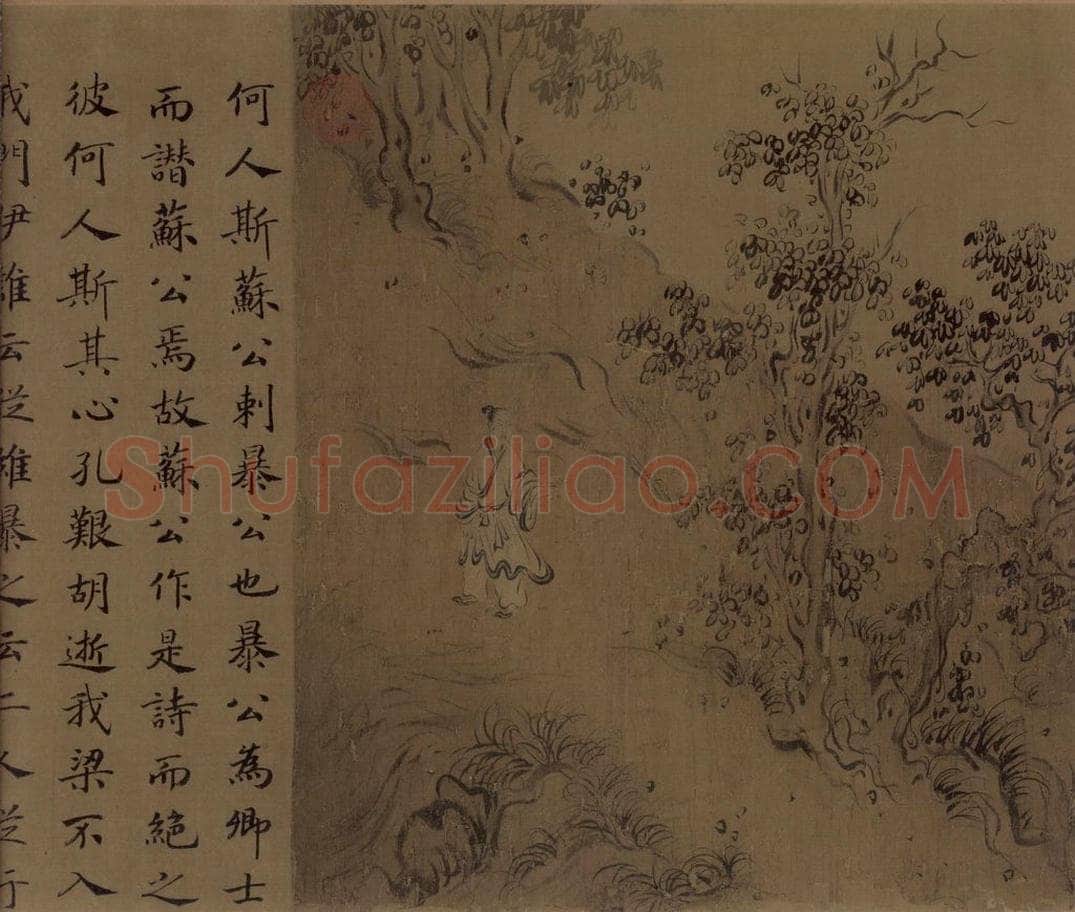 何人斯蘇公刺暴公也暴公為卿士
而譖蘇公焉故蘇公作是詩而絶之
彼何人斯其心孔艱胡逝我梁不入
我門伊誰云從維暴之云二人從行
Shufaziliao.COM